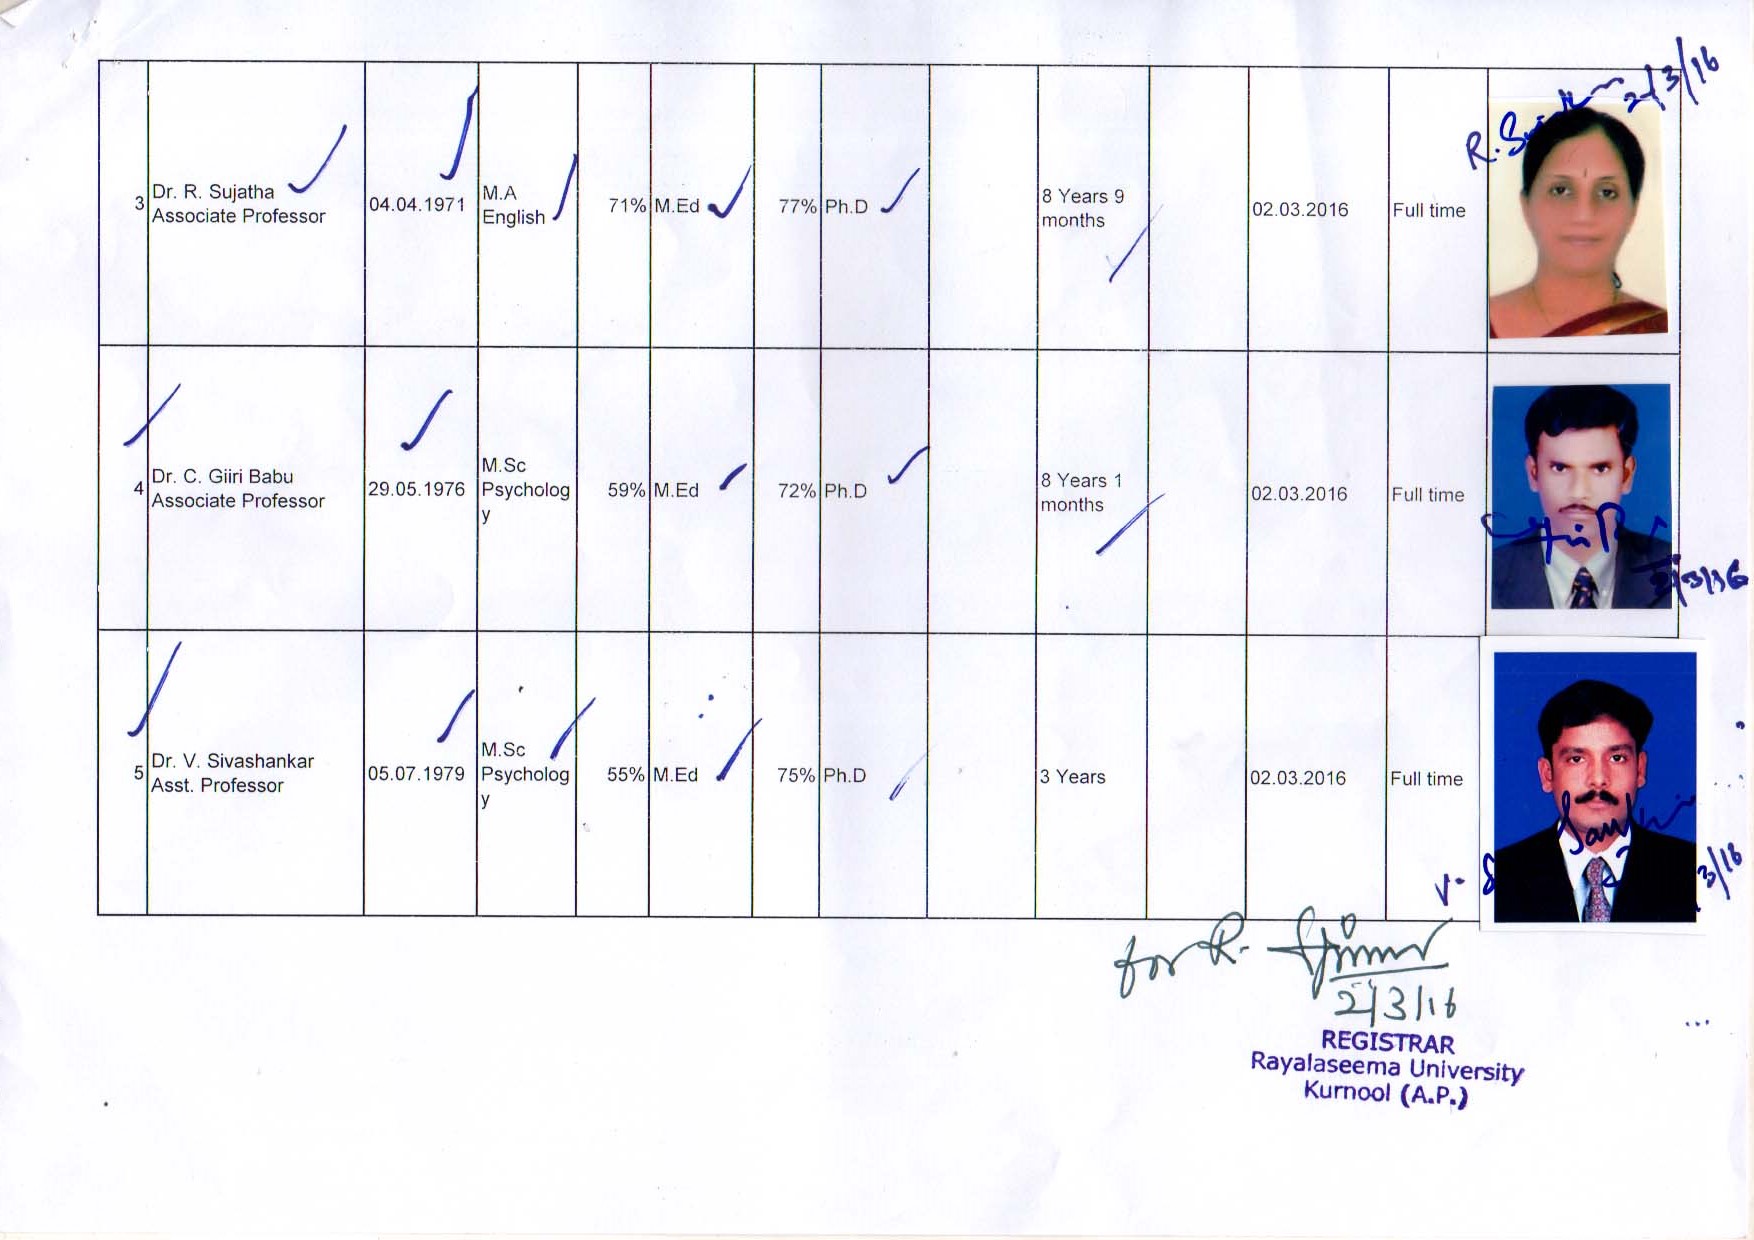 R. 2/3/16
3 Dr. R. Sujatha Associate Professor 04.04.1971 M.A English 71% M.Ed 77% Ph.D 8 Years 9 months 02.03.2016 Full time
4 Dr. C. Giiri Babu Associate Professor 29.05.1976 M.Sc Psychology 59% M.Ed 72% Ph.D 8 Years 1 months 02.03.2016 Full time
2/3/16
5 Dr. V. Sivashankar Asst. Professor 05.07.1979 M.Sc Psychology 55% M.Ed 75% Ph.D 3 Years 02.03.2016 Full time
V. 3/16
for R.
2/3/16
REGISTRAR
Rayalaseema University
Kurnool (A.P.)